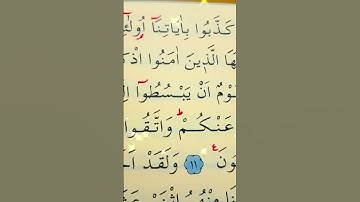 كَذَّبُوا بِاٰيَاتِنَٓا اُولٰٓئِ
هَا الَّذ۪ينَ اٰمَنُوا اذْكُ
قَوْمٌ اَنْ يَبْسُطُٓوا اِلَ
عَنْكُمْۚ وَاتَّقُوا
ونَ ﴿١١﴾ وَلَقَدْ اَخَ